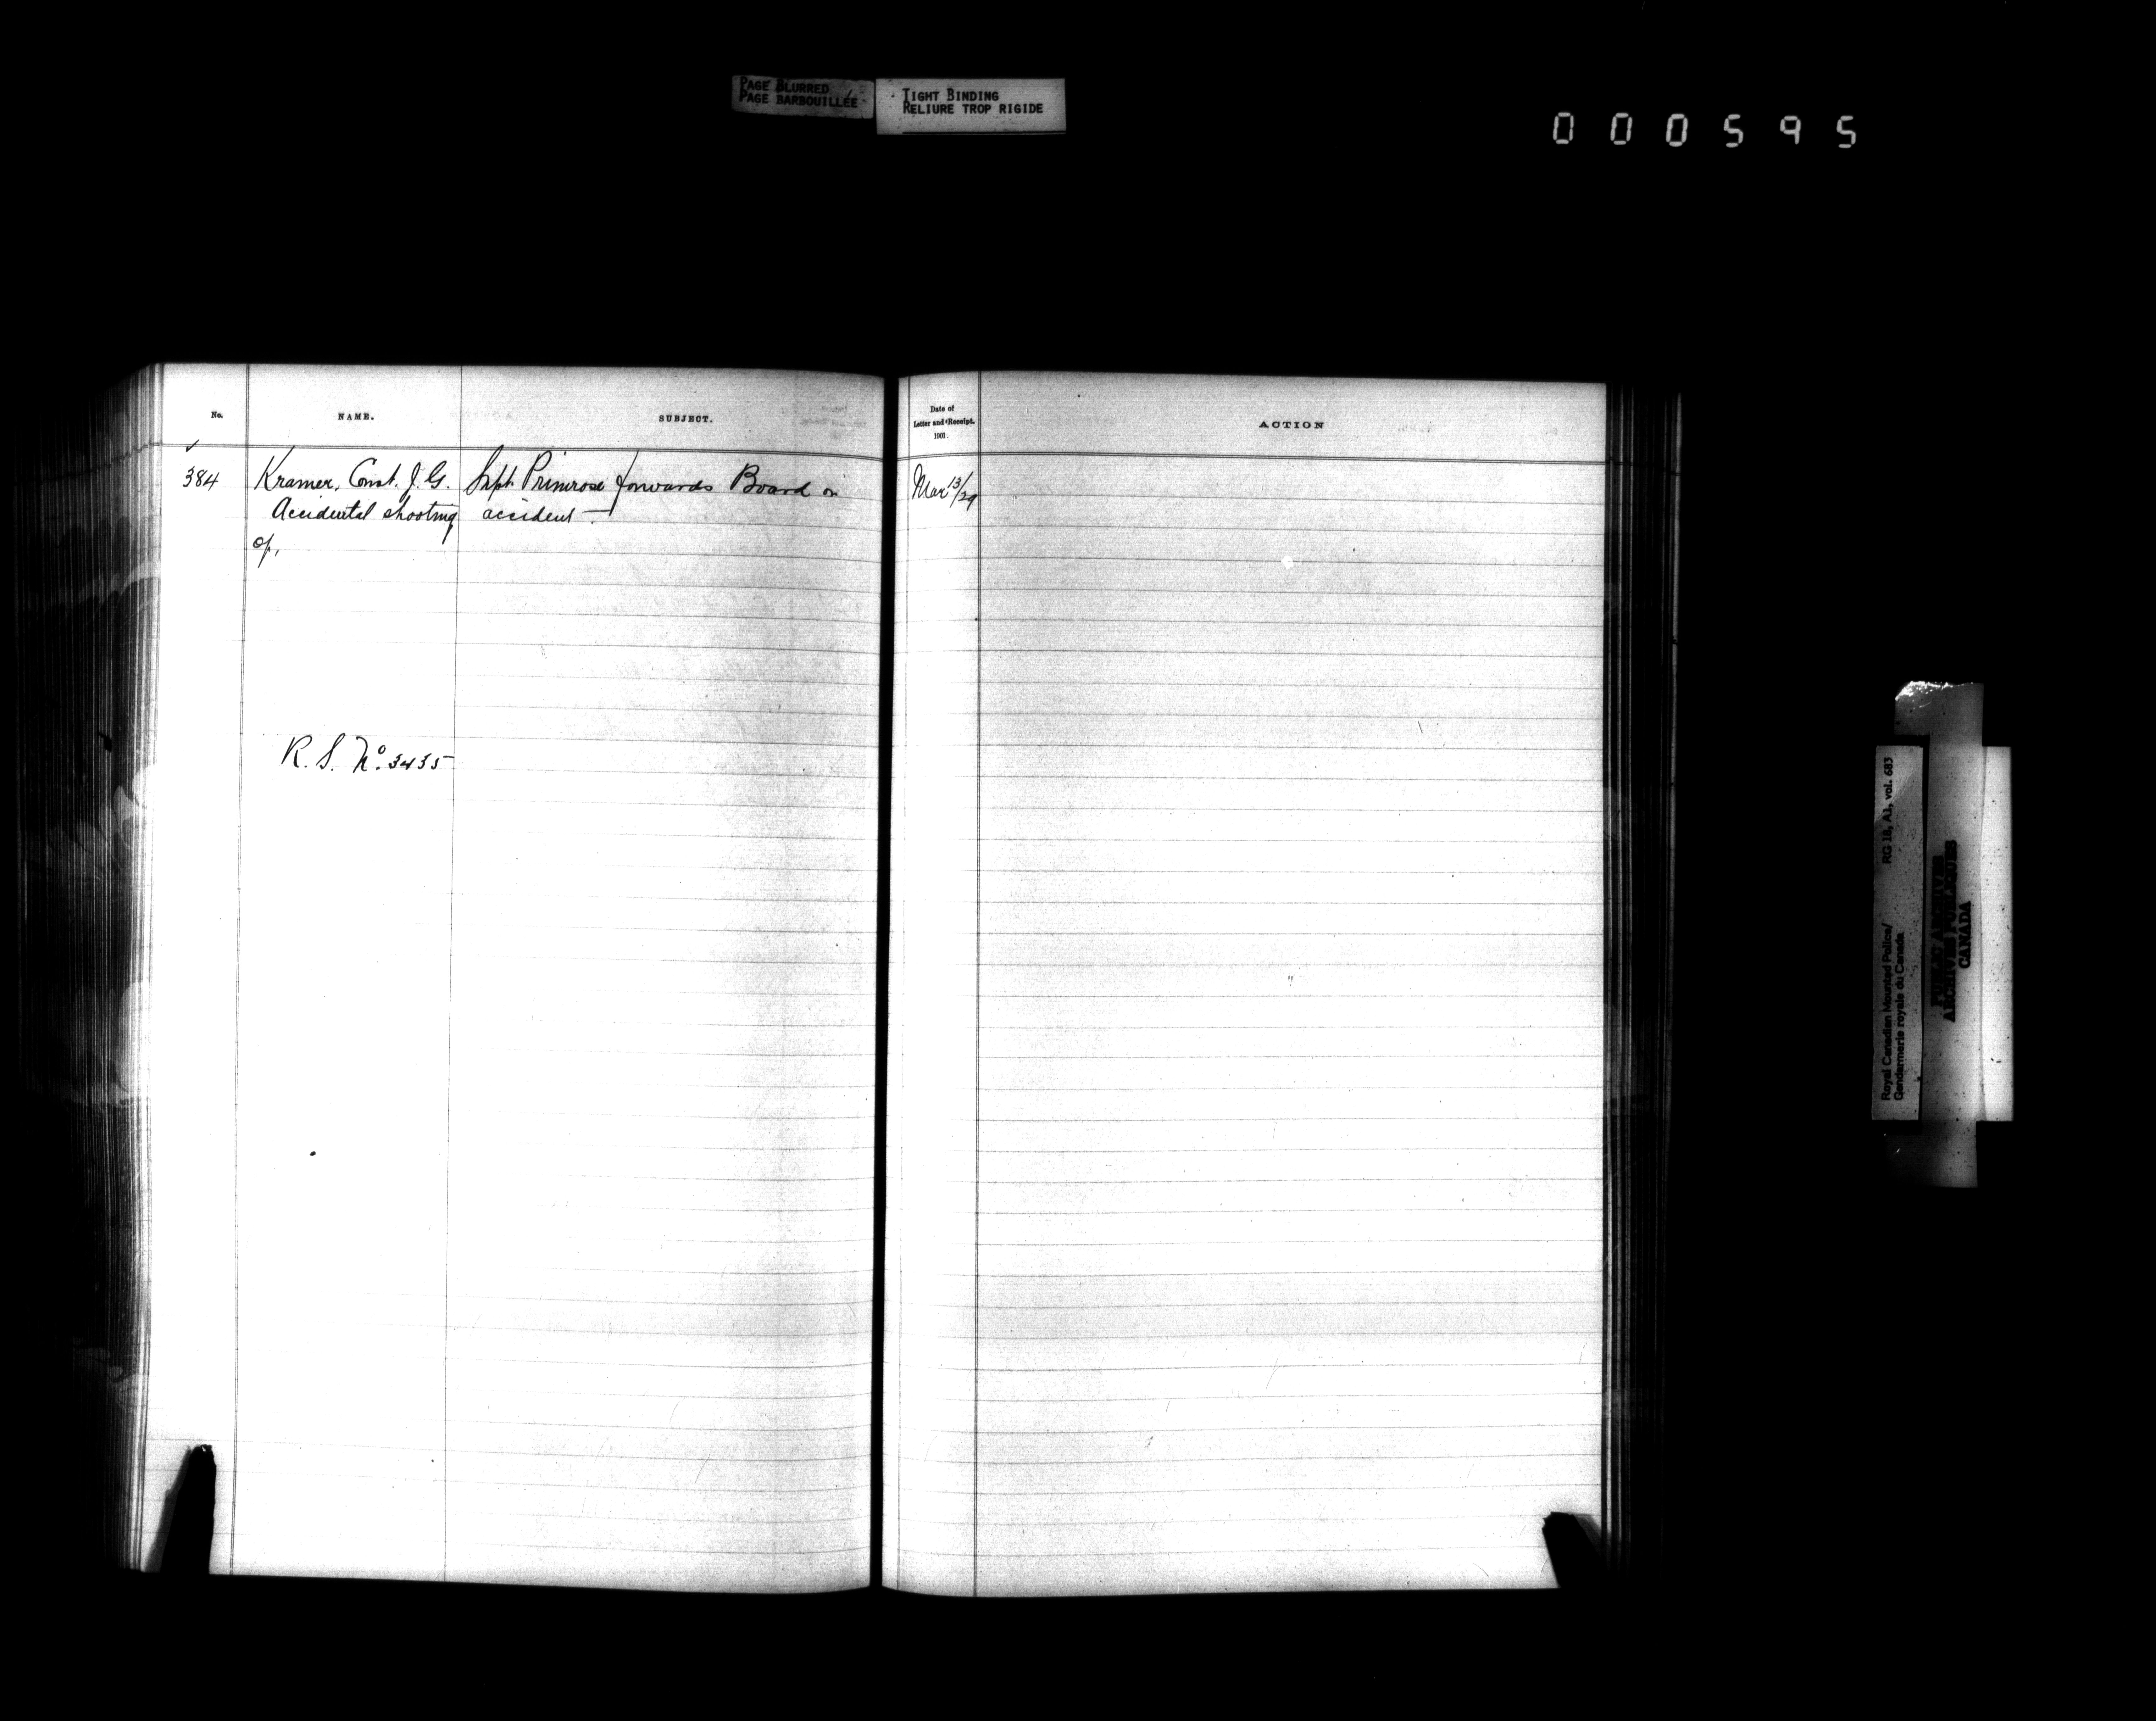 PAGE BLURRED
PAGE BARBOUILLÉE
TIGHT BINDING
RELIURE TROP RIGIDE
000595
No.
NAME.
SUBJECT.
Date of
Letter and Receipt.
1901.
ACTION
384
Kramer, Const. J. G.
Accidental shooting
of,
Supt. Primrose forwards Board on
accident —
Mar 13/29
R. S. No. 3435
Royal Canadian Mounted Police/
Gendarmerie royale du Canada
RG 18, A1, vol. 683
PUBLIC ARCHIVES
ARCHIVES PUBLIQUES
CANADA